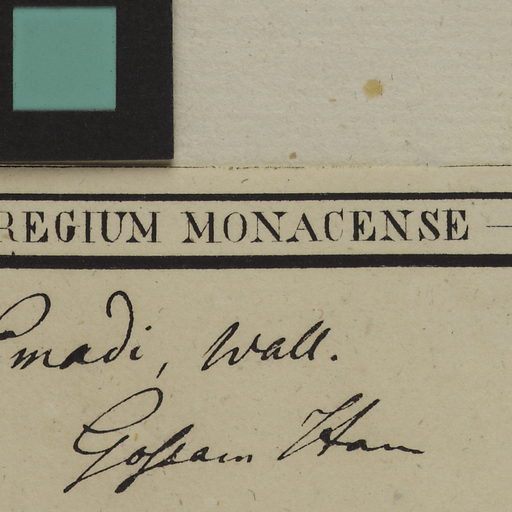 REGIUM MONACENSE
madi, Wall.
Gossain Ham